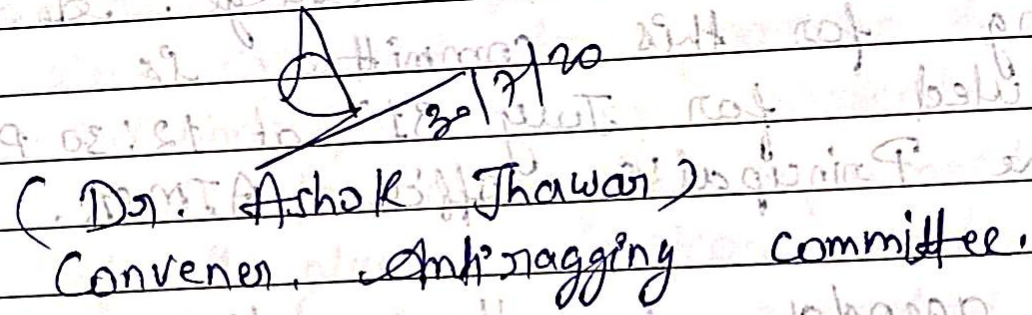 30/7/20
(Dr. Ashok Jhawar)
Convener, Antiragging committee.